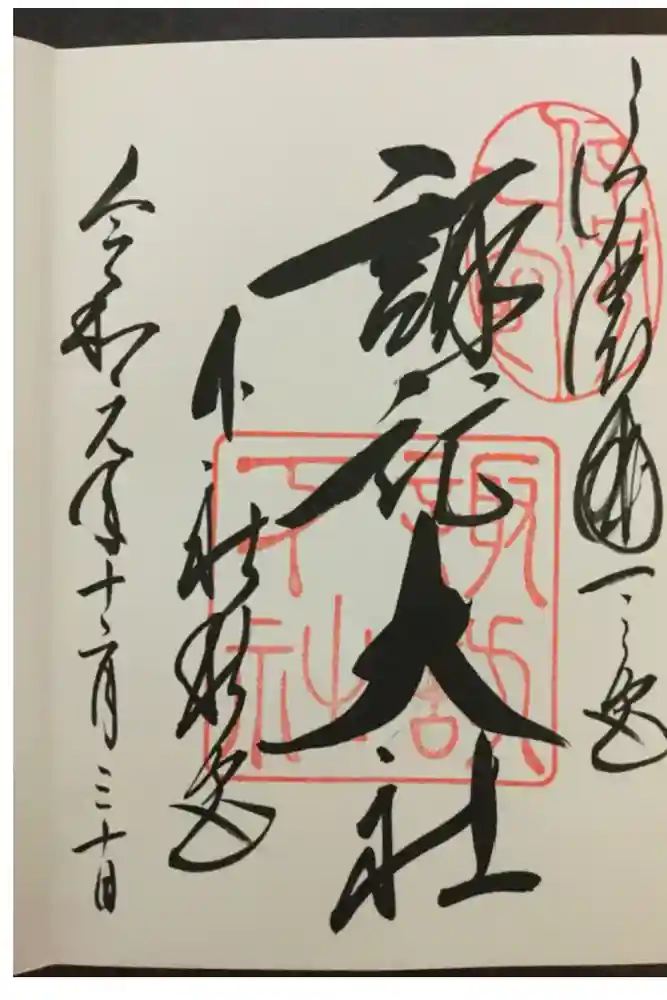 信濃國一之宮
諏訪大社
下社秋宮
令和元年十二月三十日